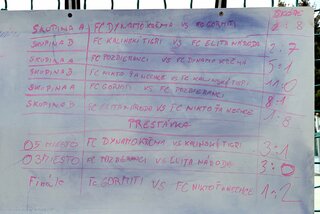 SKÓRE
SKUPINA A FC DYNAMO KREMA VS FC GORMITI 2:8
SKUPINA B FC KALINSKI TIGRI VS FC ELITA NÁRODA 2:7
SKUPINA A FC PREDIERANCI VS FC DYNAMO KREMA 5:1
SKUPINA B FC NIKTO ŤA NECHCE VS FC KALINSKÍ TIGRI
SKUPINA A FC GORMITI VS FC PREDIERANCI 8:1
SKUPINA B FC ELITA NÁRODA VS FC NIKTO ŤA NECHCE 1:8
PRESTÁVKA
O 5 MIESTO FC DYNAMO KREMA VS KALINSKÍ TIGRI 3:1
O 3 MIESTO FC PREDIERANCI VS ELITA NÁRODA 3:0
Finále FC GORMITI VS FC NIKTO ŤA NECHCE 1:2